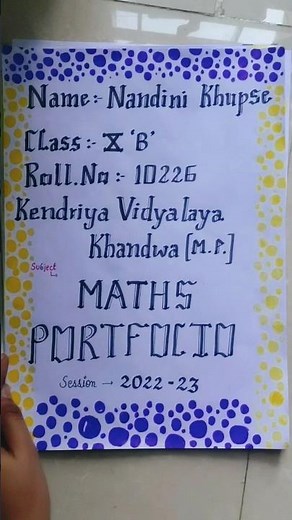 Name:- Nandini Khupse
Class:- X 'B'
Roll.No:- 10226
Kendriya Vidyalaya
Khandwa [M.P.]
Subject
MATHS
PORTFOLIO
Session → 2022-23